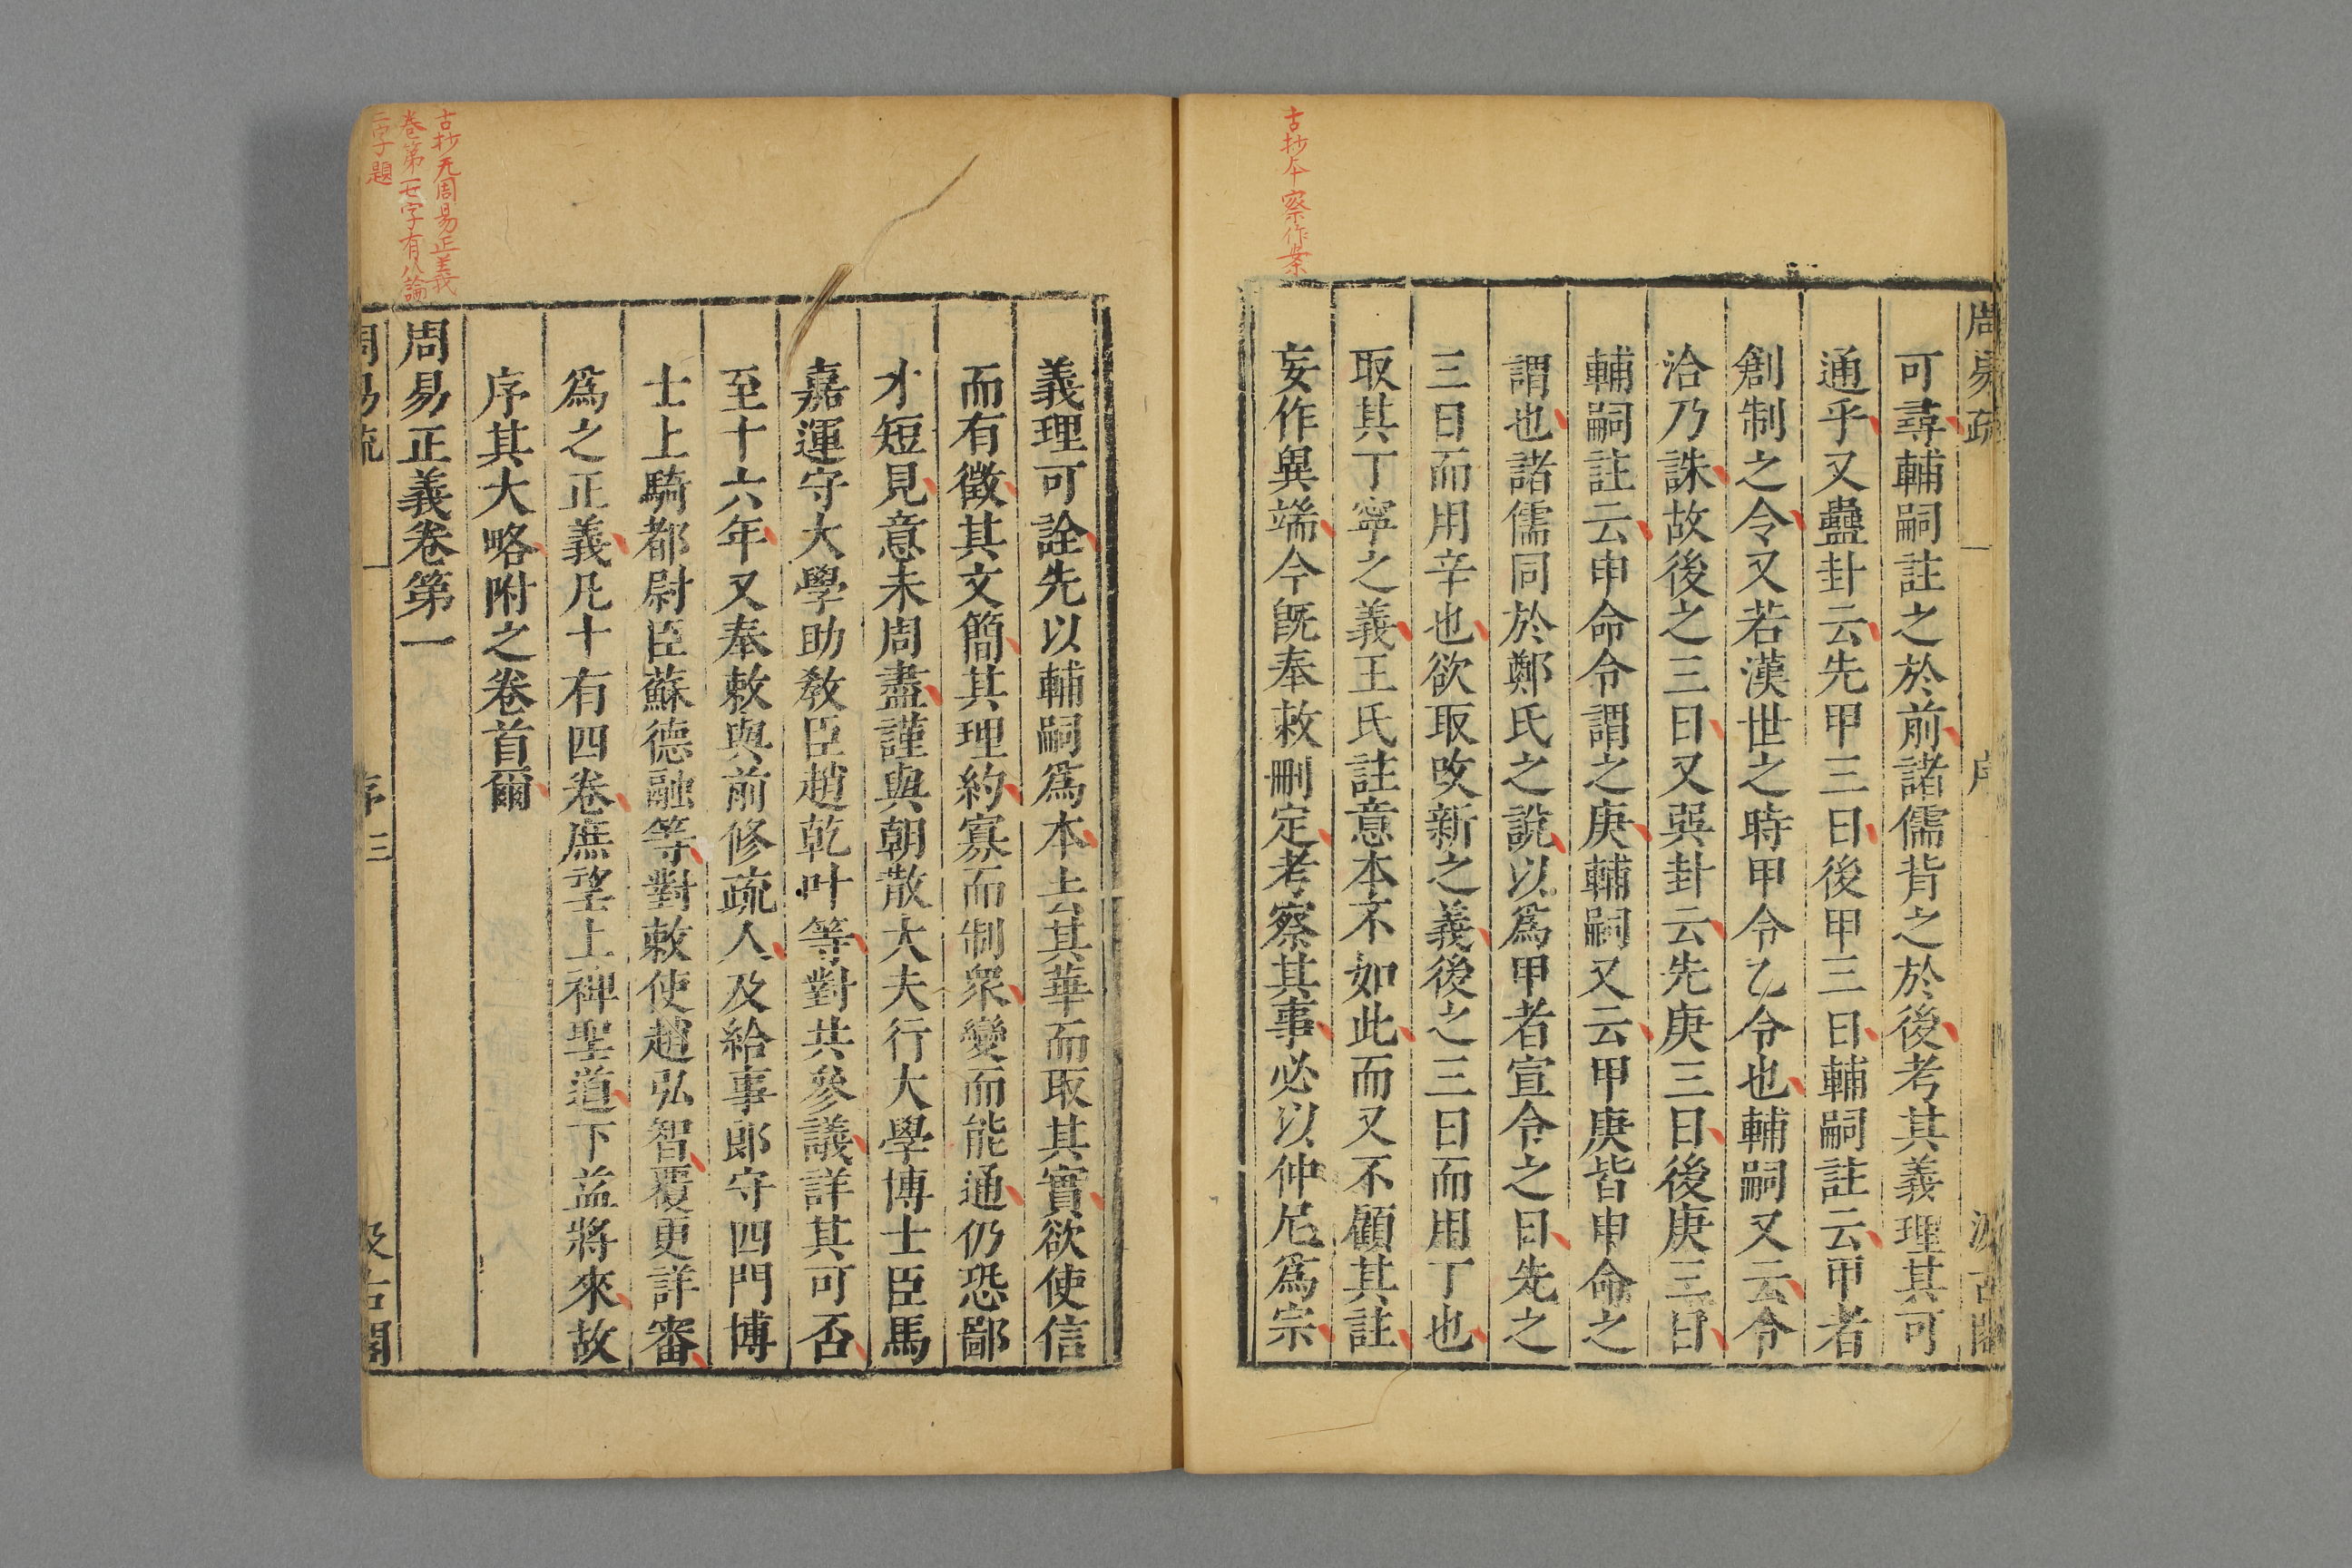 古抄本察作案
周易疏 序 汲古閣
可尋輔嗣註之於前諸儒背之於後考其義理其可
通乎又蠱卦云先甲三日後甲三日輔嗣註云甲者
創制之令又若漢世之時甲令乙令也輔嗣又云令
洽乃誅故後之三日又巽卦云先庚三日後庚三日
輔嗣註云申命令謂之庚輔嗣又云甲庚皆申命之
謂也諸儒同於鄭氏之說以爲甲者宣令之日先之
三日而用辛也欲取攺新之義後之三日而用丁也
取其丁寧之義王氏註意本不如此而又不顧其註
妄作異端今旣奉敕刪定考察其事必以仲尼爲宗
古抄无周易正義
卷第一七字有八論
二字題
義理可詮先以輔嗣爲本去其華而取其實欲使信
而有徵其文簡其理約寡而制衆變而能通仍恐鄙
才短見意未周盡謹與朝散大夫行大學博士臣馬
嘉運守大學助敎臣趙乾叶等對共參議詳其可否
至十六年又奉敕與前修疏人及給事郎守四門博
士上騎都尉臣蘇德融等對敕使趙弘智覆更詳審
爲之正義凡十有四卷庶望上裨聖道下益將來故
序其大略附之卷首爾
周易正義卷第一
周易疏 序 三 汲古閣